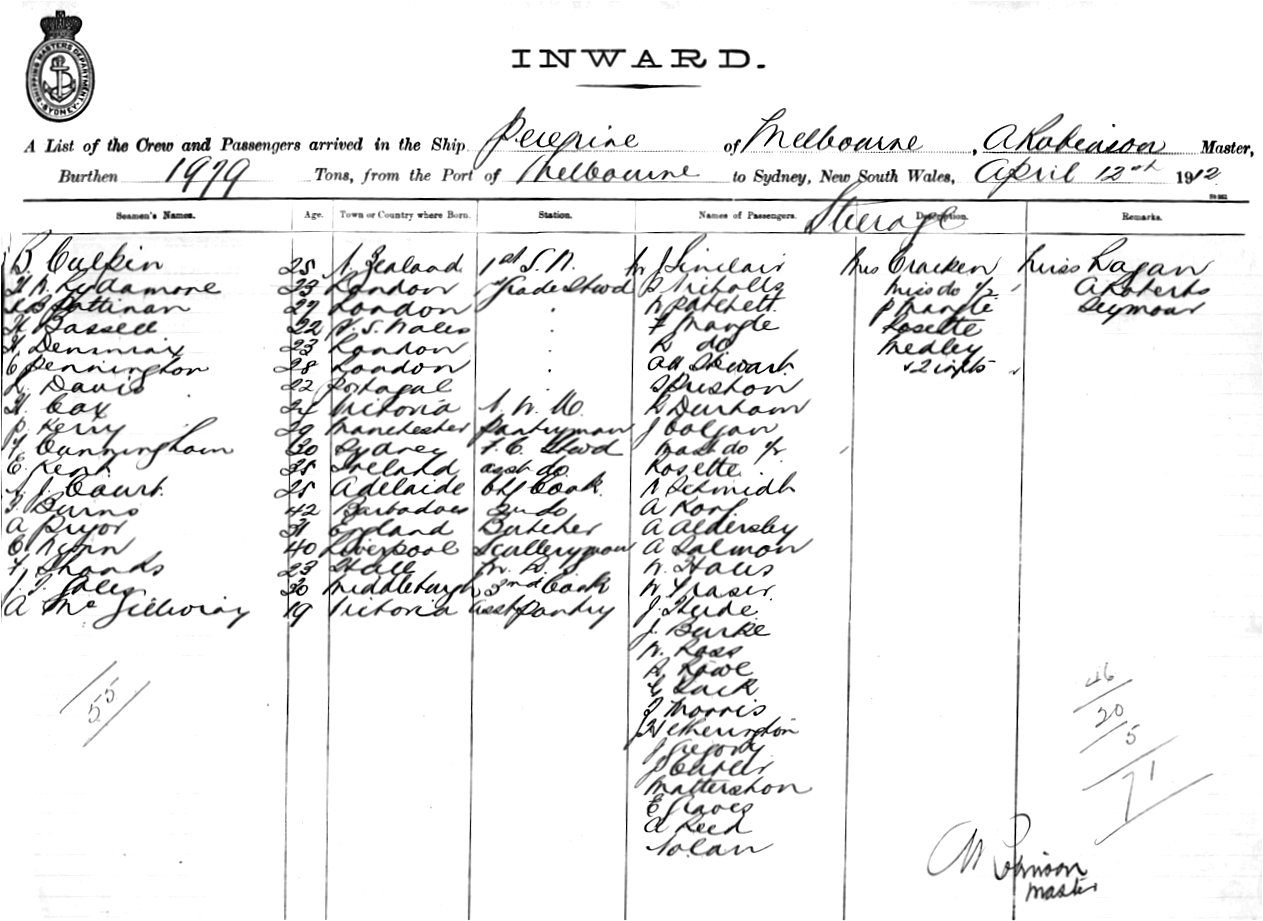 SHIPPING MASTERS DEPARTMENT SYDNEY
INWARD.
A List of the Crew and Passengers arrived in the Ship Peregrine of Melbourne, A Robinson Master,
Burthen 1979 Tons, from the Port of Melbourne to Sydney, New South Wales, April 12th 1912
Seamen's Names. Age. Town or Country where Born. Station. Names of Passengers. Description. Remarks.
Steerage
B Culpin 25 N. Zealand 1st S. Mr J Sinclair Mrs Cracken Miss Lagan
23 London Stwd Nicholls Miss do A Roberts
27 London W Patchett P Mangle Seymour
H Bassell 22 N. S. Wales F Mangle Rosette
23 London do Medley
C Pennington 28 London Stewart 2 infts
L Davis 22 Portugal Prishon
H Cox Victoria Durham
P Kerry 29 Manchester Pantryman J Colgan
Cunningham 30 Sydney F. C. Stwd Mast do
E Kent 25 Ireland asst do Rosette
J. Court 25 Adelaide Chf Cook Schmidt
Burns 42 Barbadoes 2n do A Korf
A Pryor 31 England Butcher A Aldersley
40 Liverpool Scullery man A Salmon
F. Shands 23 Hull W.
30 Middleburgh 3rd Cook W Fraser
A McGillivray 19 Victoria asst Pantry J
J Burke
W. Ross
Rowe
Morris
Hetherington
J Gregory
Mattershon
E Graves
A Reed
Nolan
55
46
20
5
71
Robinson
Master